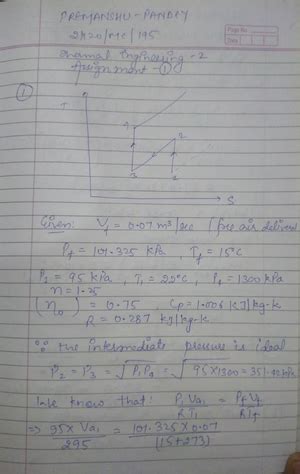 PREMANSHU-PANDEY
2K20/MC/195
Page No.
Date
Thermal Engineering-2
Assignment-①
①
T
4
2
3
1
S
Given: V_f = 0.07 m³/sec (free air delivered
P_f = 101.325 kPa, T_f = 15°C
P_1 = 95 kPa, T_1 = 22°C, P_4 = 1300 kPa
n = 1.25
(η_o) = 0.75, Cp = 1.006 kJ/kg-k
R = 0.287 kJ/kg-k
∵ the intermediate pressure is ideal
P_2 = P_3 = √P_1P_4 = √95×1300 = 351.42 kPa
We know that: P_1Va_1/RT_1 = P_fV_f/RT_f
⇒ 95×Va_1/295 = 101.325×0.07/(15+273)